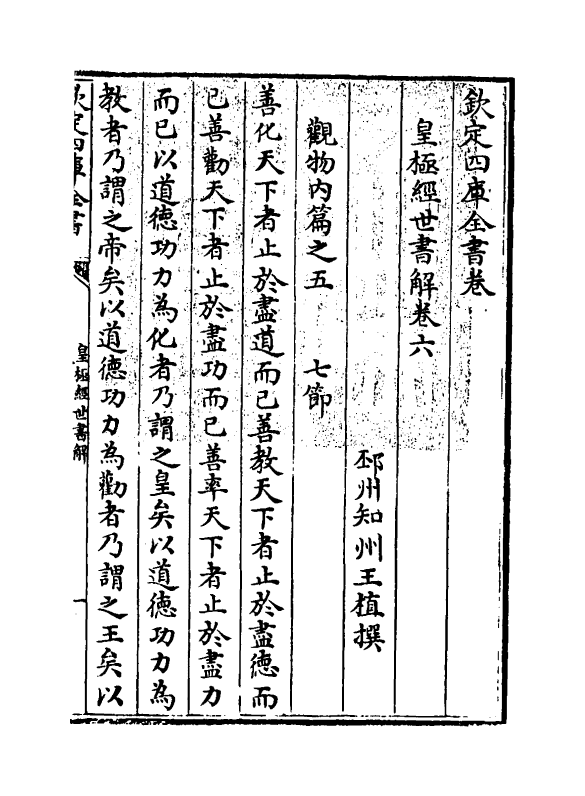 欽定四庫全書卷
皇極經世書解卷六
邳州知州王植撰
觀物内篇之五　七節
善化天下者止於盡道而已善教天下者止於盡德而
已善勸天下者止於盡功而已善率天下者止於盡力
而已以道德功力為化者乃謂之皇矣以道德功力為
教者乃謂之帝矣以道德功力為勸者乃謂之王矣以
欽定四庫全書
皇極經世書解
一